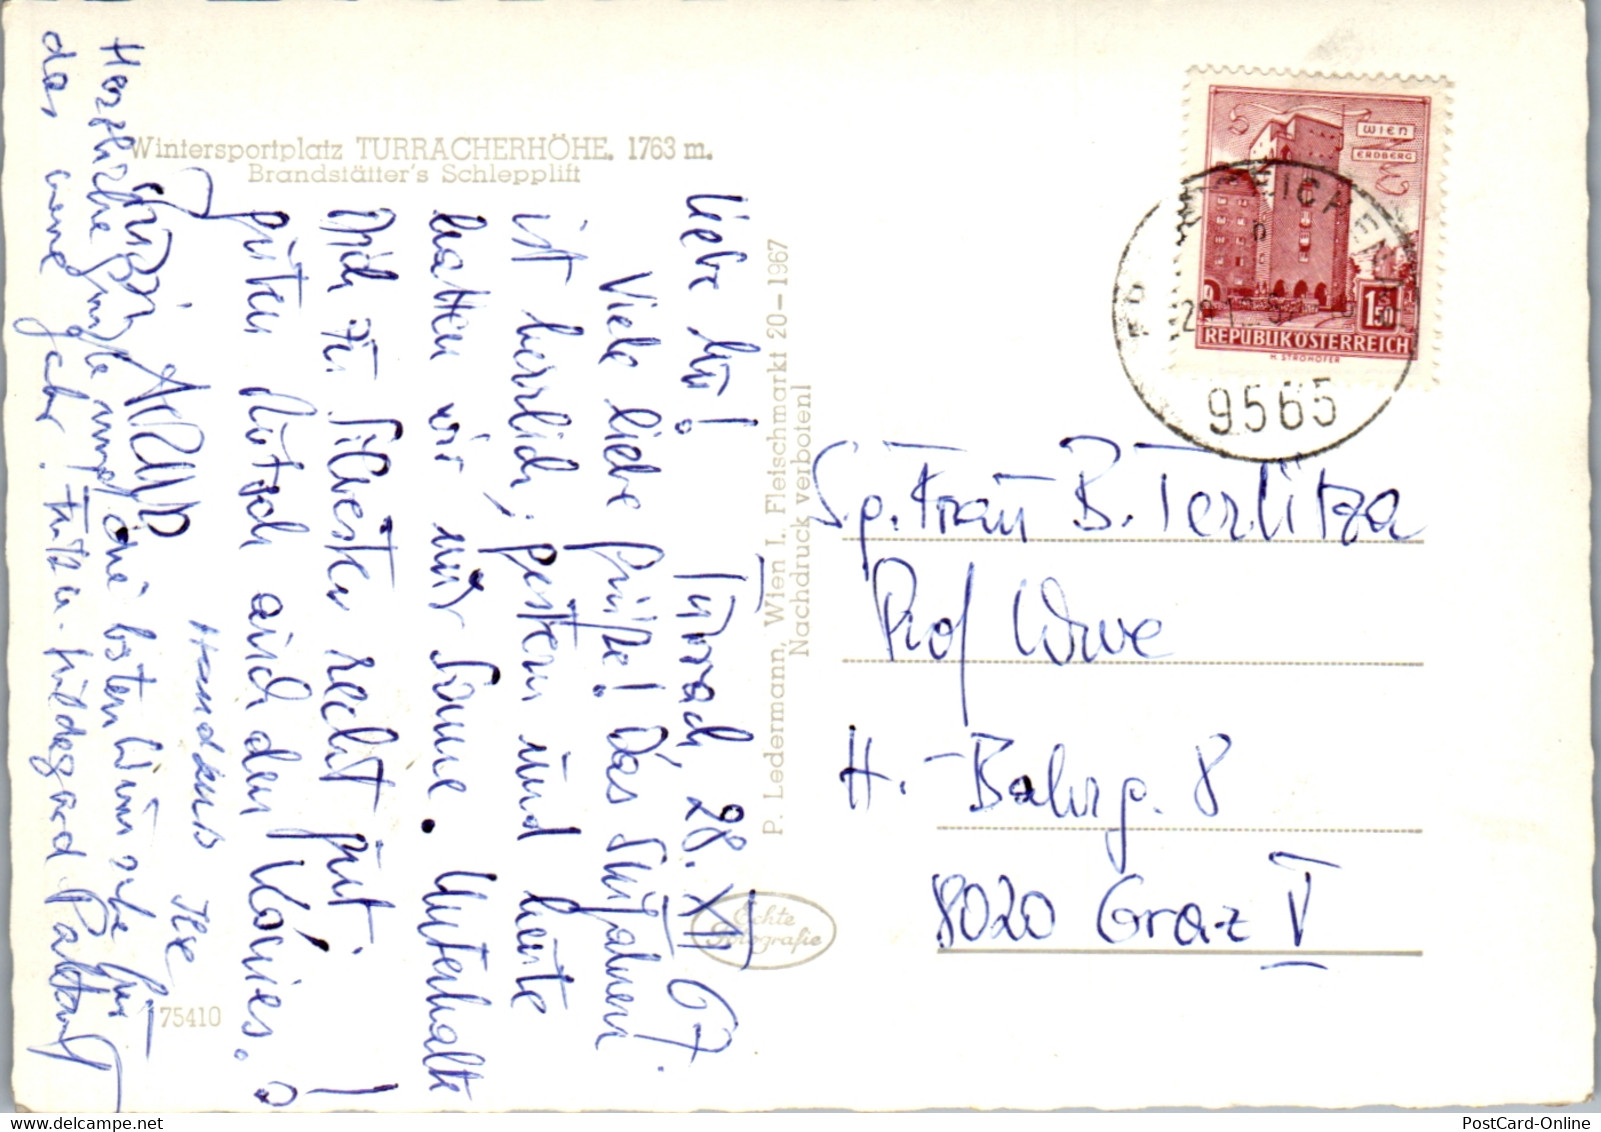 Wintersportplatz TURRACHERHÖHE. 1763 m.
Brandstätter's Schlepplift
Turrach, 28. XII 67.
Liebe
Viele liebe Grüße! Das Skifahren
ist herrlich, gestern und heute
hatten wir nur Sonne. Unterhalte
Dich zu Silvester recht gut!
guten Rutsch auch den
ARND
Handkuss Ilse
Herzliche Grüße und die besten Wünsche für
das neue Jahr! Fritz u. Hildegard
75410
P. Ledermann, Wien I., Fleischmarkt 20-1967
Nachdruck verboten!
Echte
Fotografie
WIEN
ERDBERG
1.50
REPUBLIK ÖSTERREICH
H. STROHOFER
9565
Sp. Frau B. Terlitza
Prof Wwe
H.-Bahrg. 8
8020 Graz V
PostCard-Online